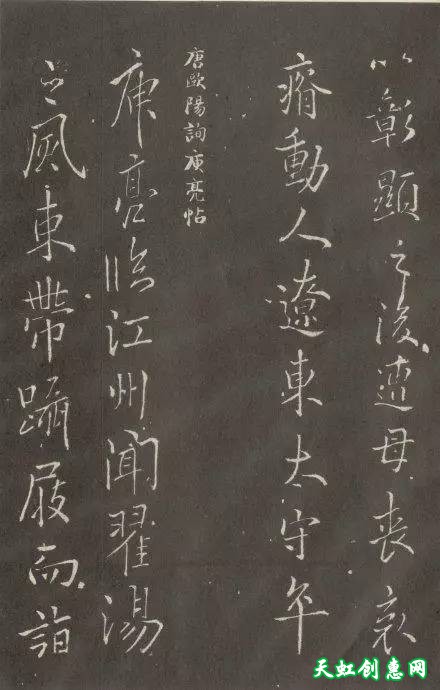 以彰顯之後遭母喪哀
瘠動人遼東太守年
唐歐陽詢庾亮帖
庾亮臨江州聞翟湯
之風束帶躡屐而詣
天虹创意网